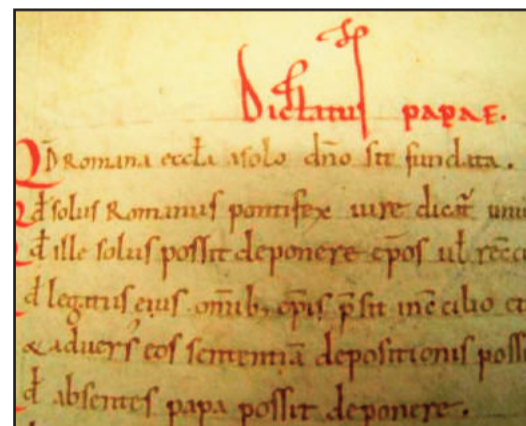 Dictatus papae.
Qđ Romana eccła a solo dño sit fundata.
Qđ solus Romanus pontifex iure dicat̃
Qđ ille solus possit deponere ep̄os uł
qđ legatus eius omnib; ep̄is p̄sit in
& adversꝰ eos sententiā depositionis poss
qđ absentes papa possit deponere.